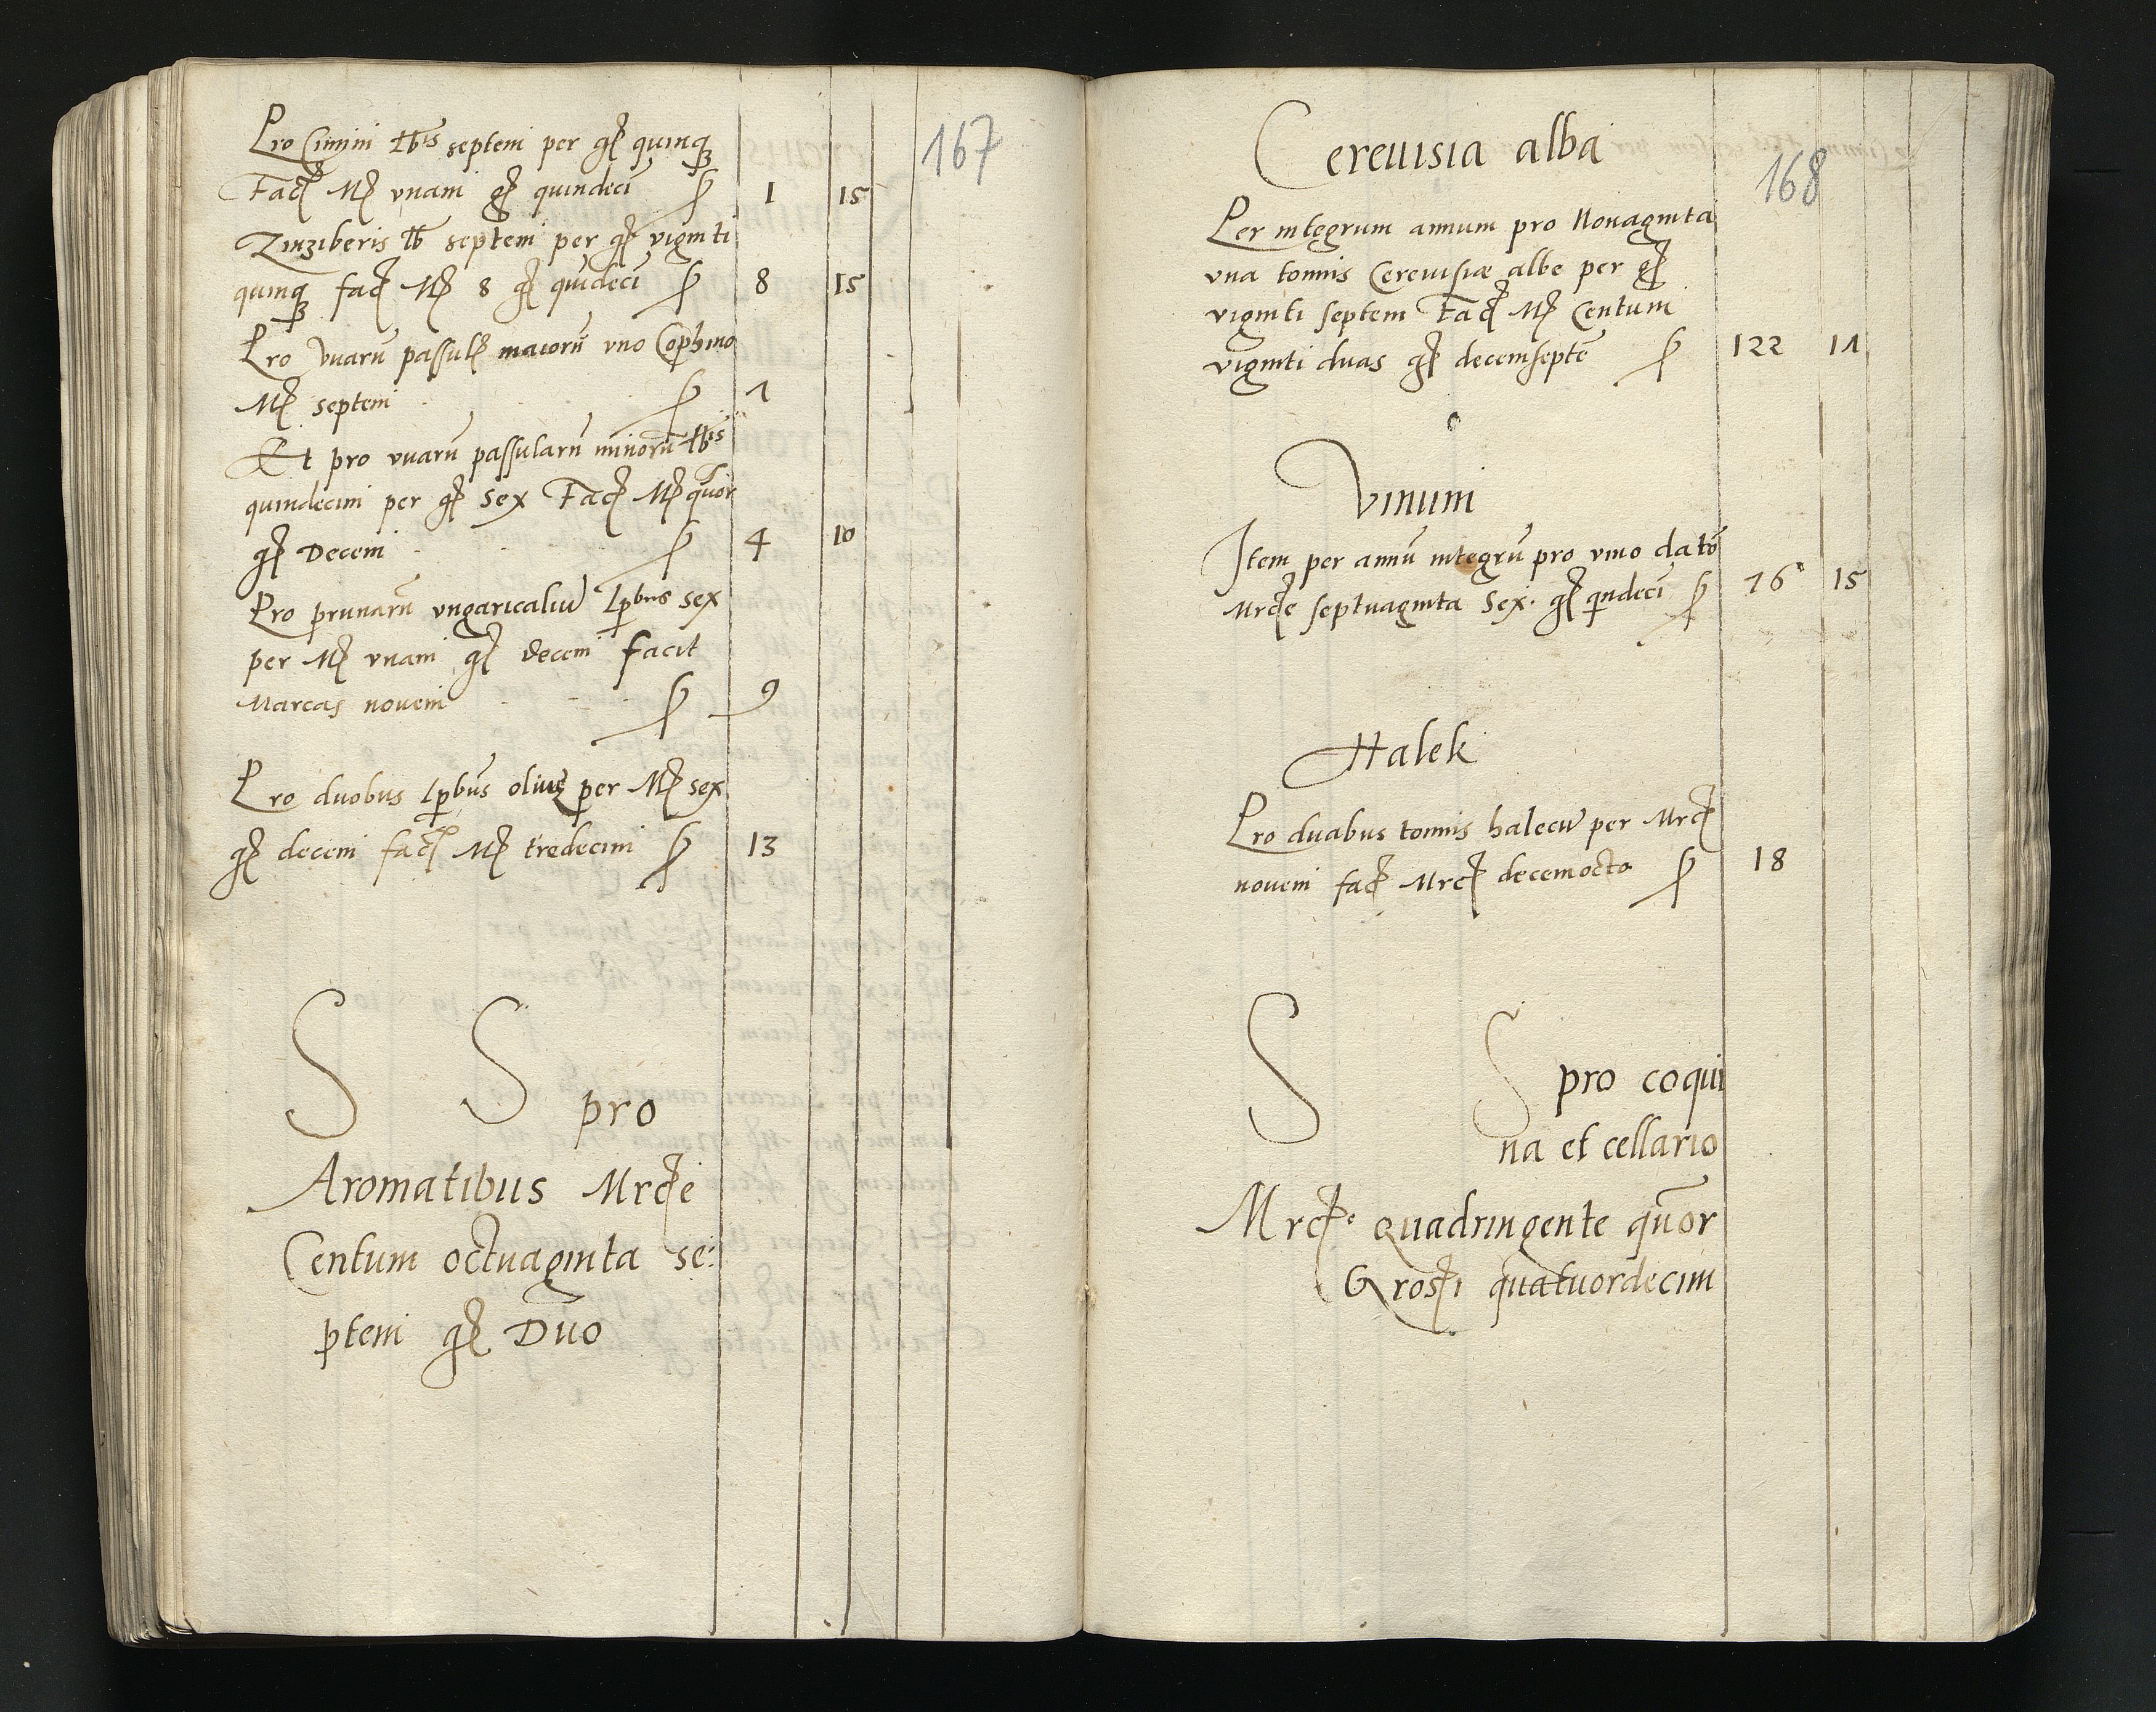 167
Pro Cimini lbis septem per gɼ quinqꝫ
Facɼ Mɼ vnam gɼ quindeci 1 15
Zinziberis lb septem per gɼ viginti
quinqꝫ facɼ Mɼ 8 gɼ quideci 8 15
Pro Vuarū passulɼ maiorū vno Cophino
Mɼ septem 7
Et pro vuarū passularū minorū lbis
quindecim per gɼ sex Facɼ Mɼ quor
gɼ Decem 4 10
Pro prunarū vngaricaliū sex
per Mɼ vnam gɼ decem facit
Marcas novem 9
Pro duobus per Mɼ sex
gɼ decem facɼ Mɼ tredecim 13
S S pro
Aromatibus Mrcɼe
Centum octuaginta se:
ptem gɼ Duo
168
Cereuisia alba
Per integrum annum pro Nonaginta
vna tonnis Cereuisiæ albe per gɼ
viginti septem Facɼ Mɼ Centum
viginti duas gɼ decemseptē 122 17
Vinum
Item per annū integrū pro vino datū
Mrcɼe septuaginta Sex. gɼ quideci 76 15
Halek
Pro duabus tonnis halecū per Mrcɼ
novem facɼ Mrcɼ decemocto 18
S S pro coqui
na et cellario
Mrcɼe quadringente quor
Grosɼi quatuordecim